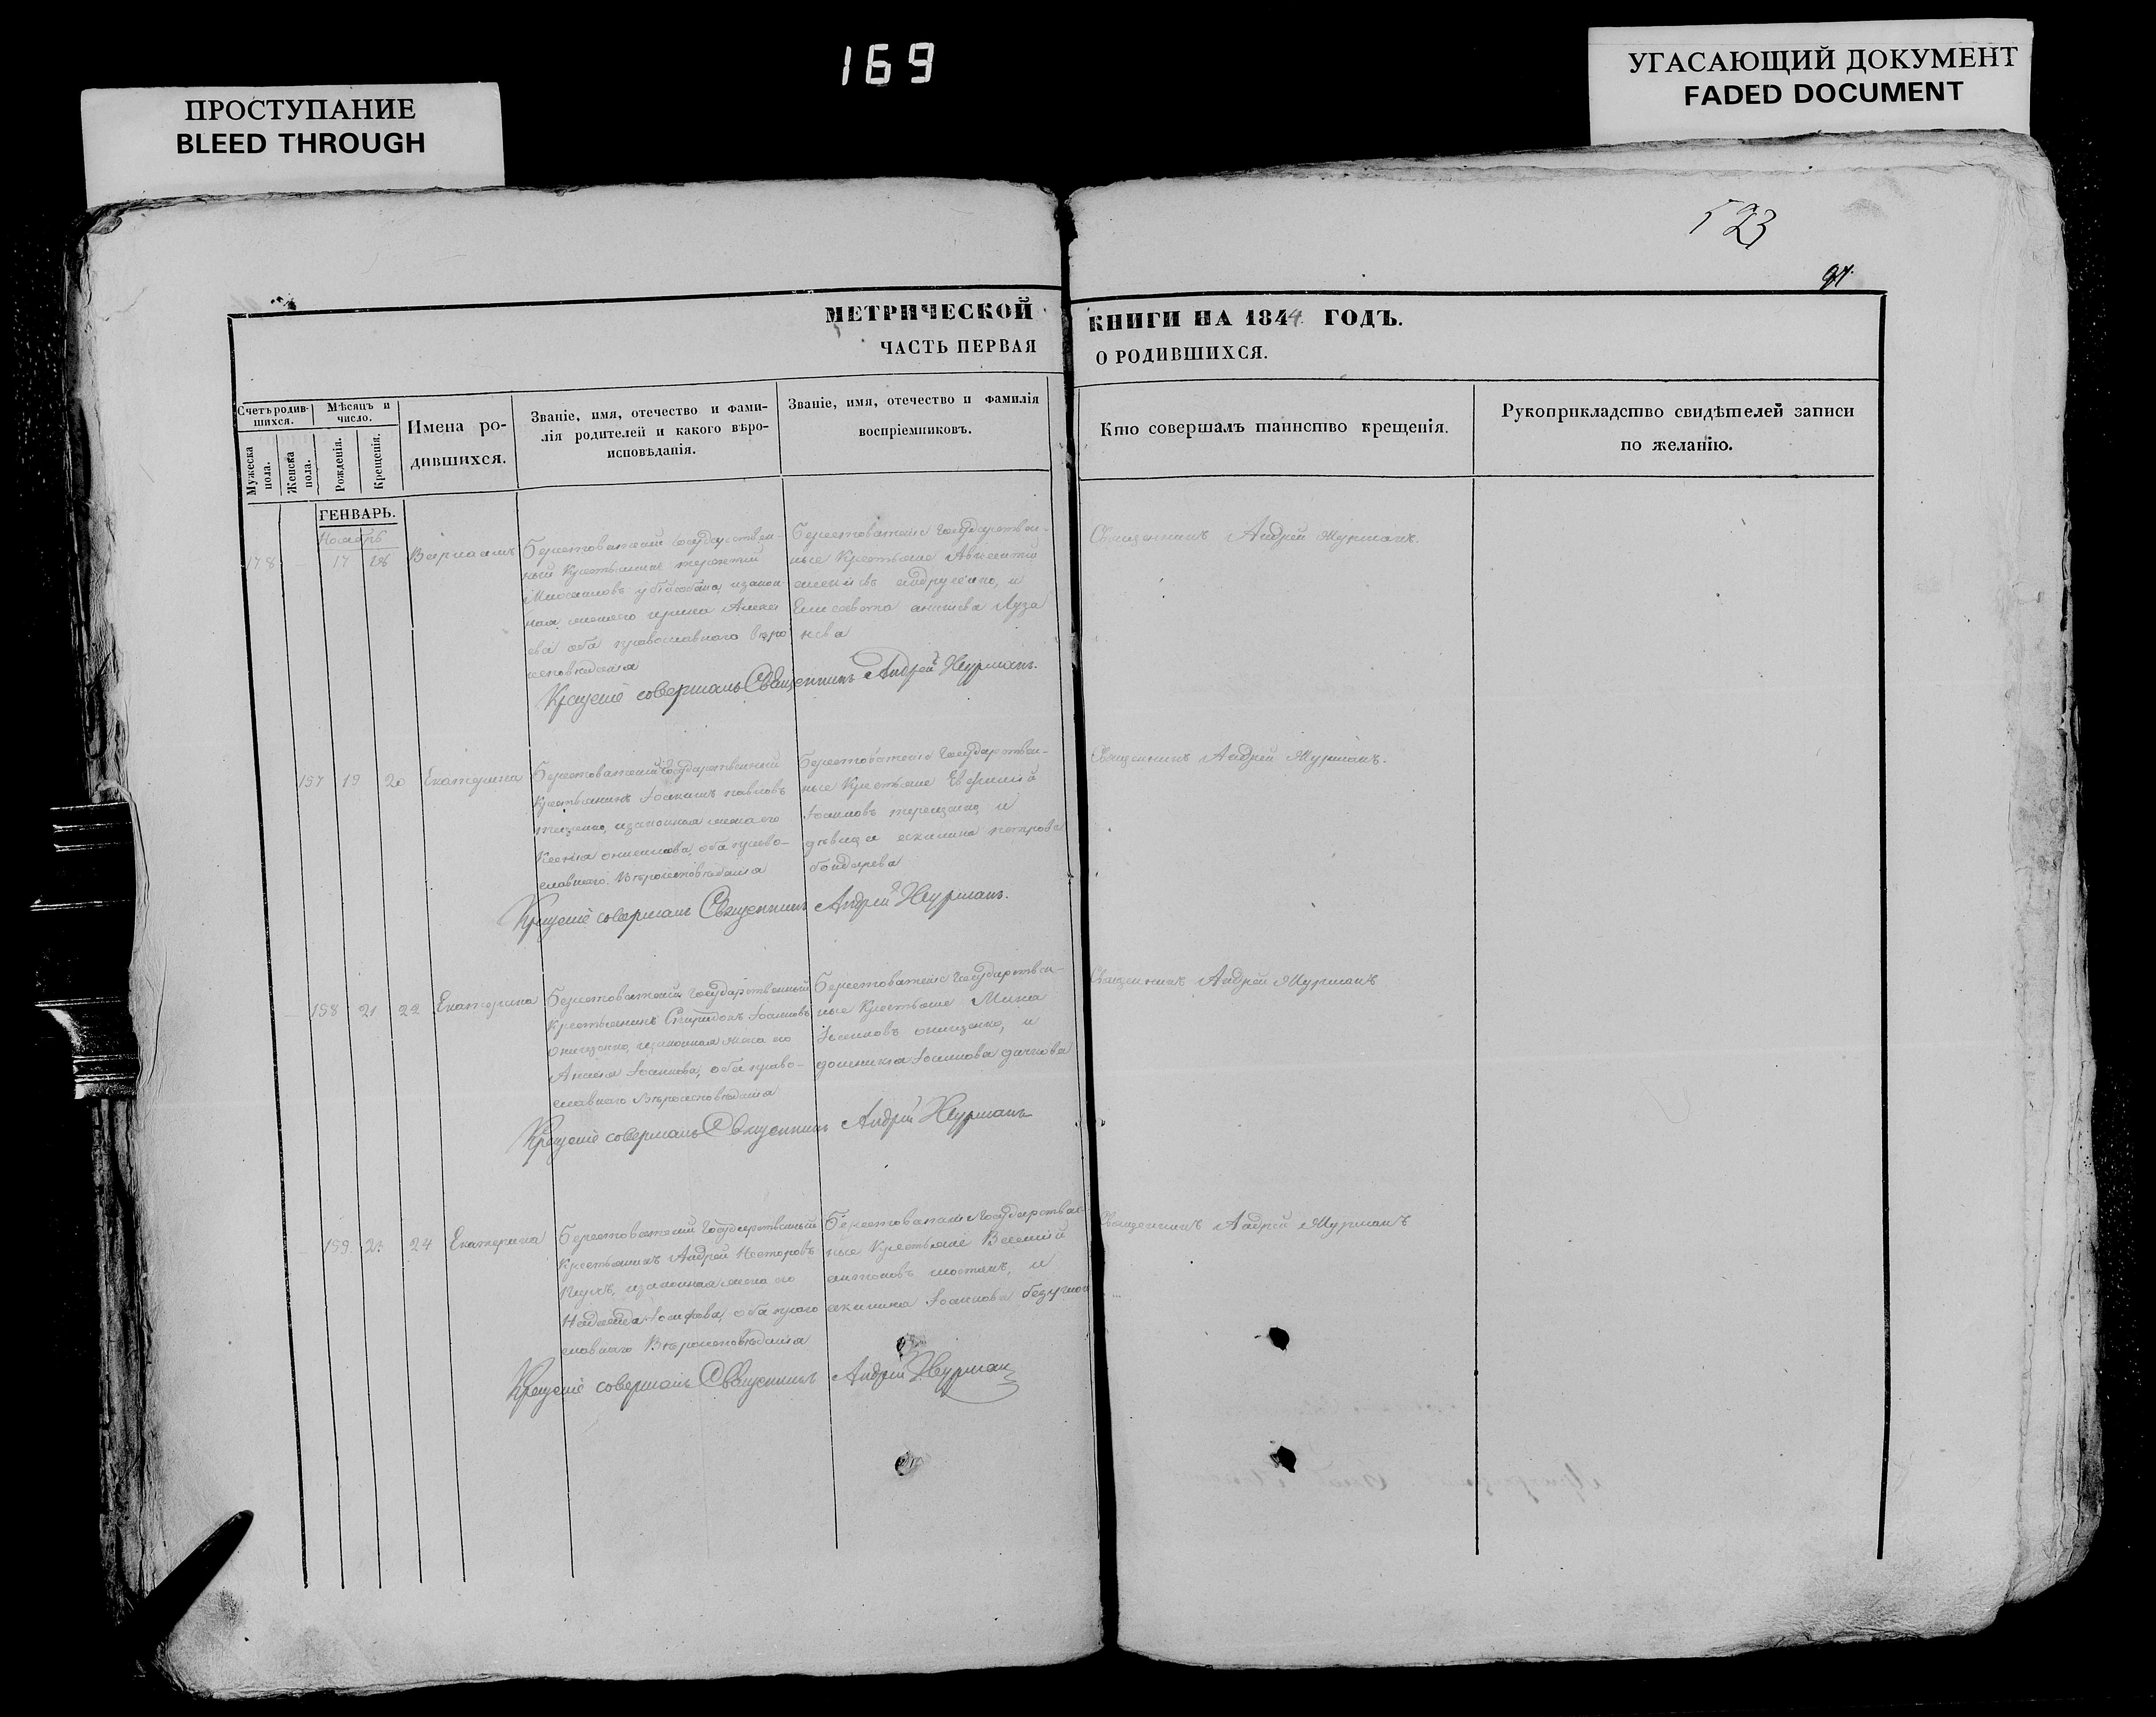 169
ПРОСТУПАНИЕ
BLEED THROUGH
УГАСАЮЩИЙ ДОКУМЕНТ
FADED DOCUMENT
523
91.
МЕТРИЧЕСКОЙ КНИГИ НА 1844 ГОДЪ.
ЧАСТЬ ПЕРВАЯ О РОДИВШИХСЯ.
Счетъ родив-
шихся.
Мужеска пола.
Женска пола.
Мѣсяцъ и
число.
Рожденія.
Крещенія.
Имена ро-
дившихся.
Званіе, имя, отечество и фами-
лія родителей и какого вѣро-
исповѣданія.
Званіе, имя, отечество и фамилія
воспріемниковъ.
Кто совершалъ таинство крещенія.
Рукоприкладство свидѣтелей записи
по желанію.
ГЕНВАРЬ.
Ноябрь
178 17 18 Варлаамъ
Берестоватскій Государствен-
ный Крестьянинъ
законная
жена его Ирина
ева оба православнаго Вѣро
исповѣданія
Берестоватскіе Государствен-
ные Крестьяне Авксентій
и
Елисавета
Священникъ Андрей Журманъ.
Крещеніе совершалъ Священникъ Андрей Журманъ.
157 19 20 Екатерина
Берестоватскій Государственный
Крестьянинъ Іоакимъ павловъ
изаконная жена его
Ксенія оба право-
славнаго Вѣроисповѣданія
Берестоватскіе Государствен-
ные Крестьяне Евфимій
Іоанновъ терещенко, и
дѣвица акилина петрова
бондарева
Священникъ Андрей Журманъ.
Крещеніе совершалъ Священникъ Андрей Журманъ.
158 21 22 Екатерина
Берестоватскій Государственный
Крестьянинъ Спиридонъ Іоанновъ
онищенко, изаконная жена его
Іоаннова, оба право-
славнаго Вѣроисповѣданія
Берестоватскіе Государствен-
ные Крестьяне Мина
онищенко, и
домникія Іоаннова
Священникъ Андрей Журманъ
Крещеніе совершалъ Священникъ Андрей Журманъ
159 23 24 Екатерина
Берестоватскій Государственный
Крестьянинъ Андрей Несторовъ
изаконная жена его
Надежда Іосифова, оба право
славнаго Вѣроисповѣданія
Берестоватскіе Государствен-
ные Крестьяне Василій
антоновъ шостакъ, и
акилина Іоаннова
Священникъ Андрей Журманъ
Крещеніе совершалъ Священникъ Андрей Журманъ